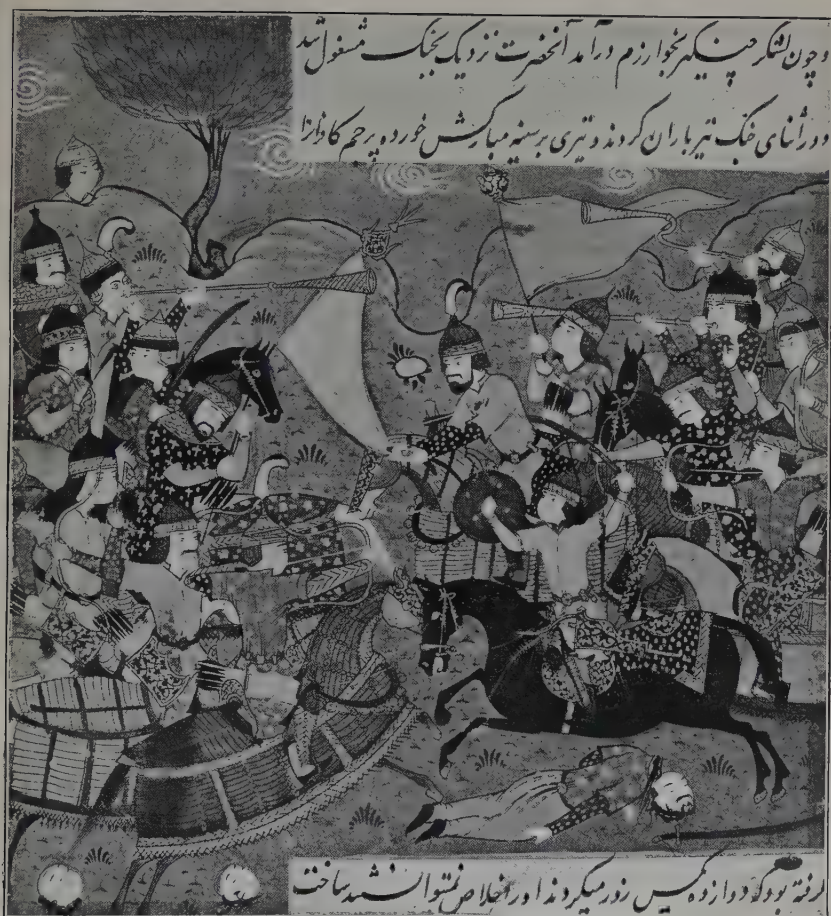 و چون لشکر چنگیز بخوارزم درآمد آنحضرت نزدیک بجنگ مشغول شد
و در اثنای جنگ تیر باران کردند و تیری بر سینه مبارکش خورده پرچم
گرفته بود که دوازده کس زور میکردند او را خلاص نمیتوانستند ساخت